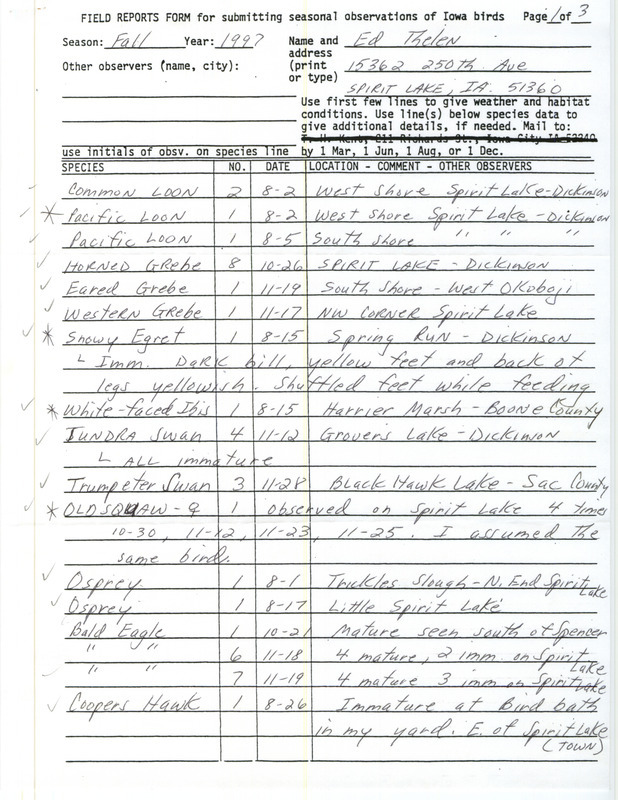 FIELD REPORTS FORM for submitting seasonal observations of Iowa birds Page 1 of 3
Season: Fall Year: 1997 Name and Ed Thelen
address
Other observers (name, city): (print 15362 250th Ave
or type) SPIRIT LAKE, IA. 51360
Use first few lines to give weather and habitat
conditions. Use line(s) below species data to
give additional details, if needed. Mail to:
T. H. Kent, 211 Richards St., Iowa City IA 52240
use initials of obsv. on species line by 1 Mar, 1 Jun, 1 Aug, or 1 Dec.
SPECIES NO. DATE LOCATION - COMMENT - OTHER OBSERVERS
Common Loon 2 8-2 West shore Spirit Lake - Dickinson
* Pacific Loon 1 8-2 West shore Spirit Lake - Dickinson
Pacific Loon 1 8-5 South shore " " "
HORNED Grebe 8 10-26 SPIRIT LAKE - Dickinson
Eared Grebe 1 11-19 South Shore - West Okoboji
Western Grebe 1 11-17 NW CORNER Spirit Lake
* Snowy Egret 1 8-15 Spring Run - Dickinson
Imm. Dark bill, yellow feet and back of
legs yellowish. Shuffled feet while feeding
* White-faced Ibis 1 8-15 Harrier Marsh - Boone County
TUNDRA Swan 4 11-12 Grovers Lake - Dickinson
ALL immature
Trumpeter Swan 3 11-28 Black Hawk Lake - Sac County
* OLDSQUAW - ♀ 1 observed on Spirit Lake 4 times
10-30, 11-12, 11-23, 11-25. I assumed the
same bird.
Osprey 1 8-1 Trickles Slough - N. End Spirit Lake
Osprey 1 8-17 Little Spirit Lake
Bald Eagle 1 10-21 Mature seen south of Spencer
" " 6 11-18 4 mature, 2 imm on Spirit Lake
" " 7 11-19 4 mature 3 imm on Spirit Lake
Coopers Hawk 1 8-26 Immature at Bird bath
in my yard. E. of Spirit Lake
(TOWN)